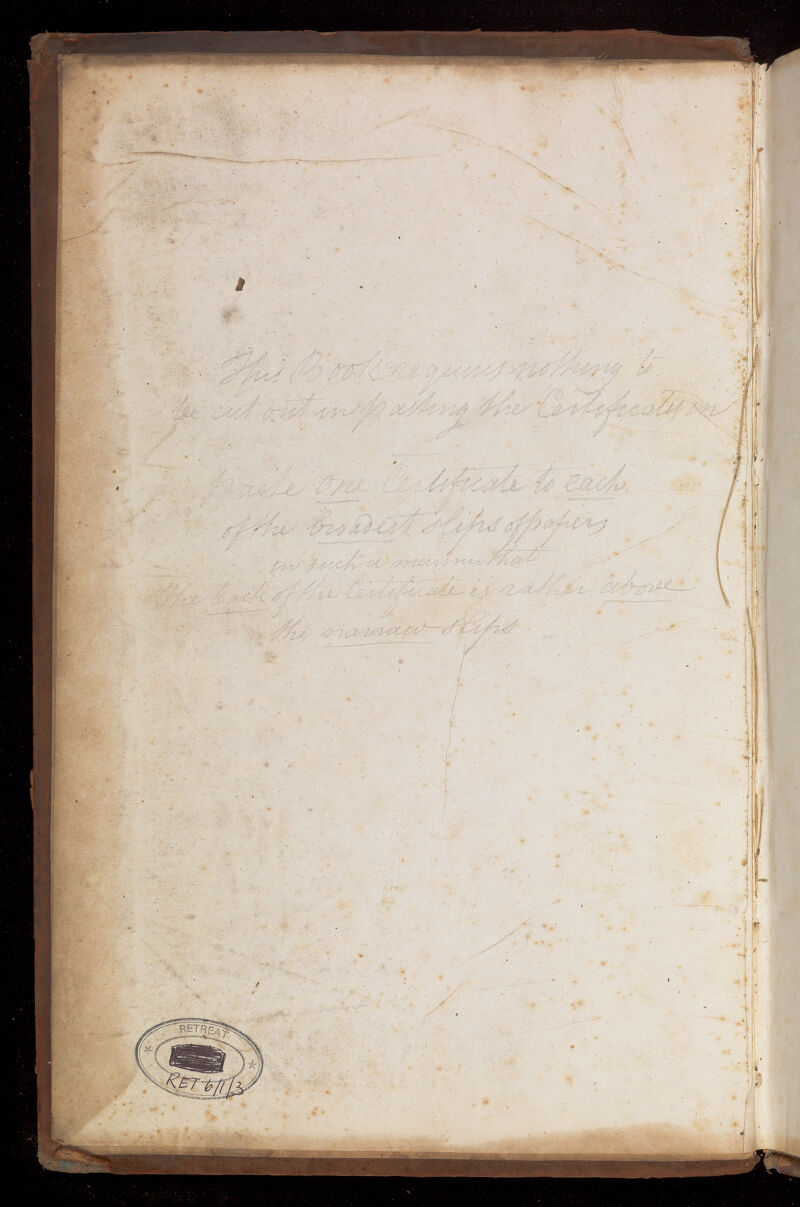 This Book requires nothing to
be cut out in pasting the Certificates in
paste One Certificate to each
of the broadest slips of paper,
in such a manner that
the back of the Certificate is rather above
the narrow slips
RETREAT
RET 6/1/3